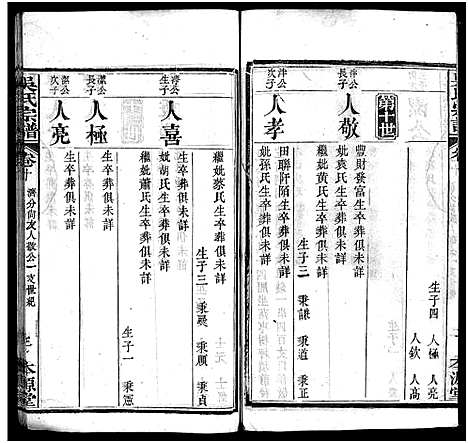 吳氏宗譜
卷十
生子四 人極 人亮
人欽 人高
第十世
泮公長子
人敬
豐財發富生卒葬俱未詳
妣袁氏生卒葬俱未詳
繼妣黃氏生卒葬俱未詳
生子三 秉謙 秉道 秉正
泮公次子
人孝
田聯阡陌生卒葬俱未詳
妣孫氏生卒葬俱未詳
本源堂
生子三 秉彝 秉順 秉貞
繼妣蔡氏生卒葬俱未詳
公生子
人喜
生卒葬俱未詳
妣胡氏生卒葬俱未詳
繼妣蕭氏生卒葬俱未詳
生子一 秉憲
潔公長子
人極
生卒葬俱未詳
潔公次子
人亮
生卒葬俱未詳
吳氏宗譜
卷十
濟分向友人敬公一支世紀
本源堂